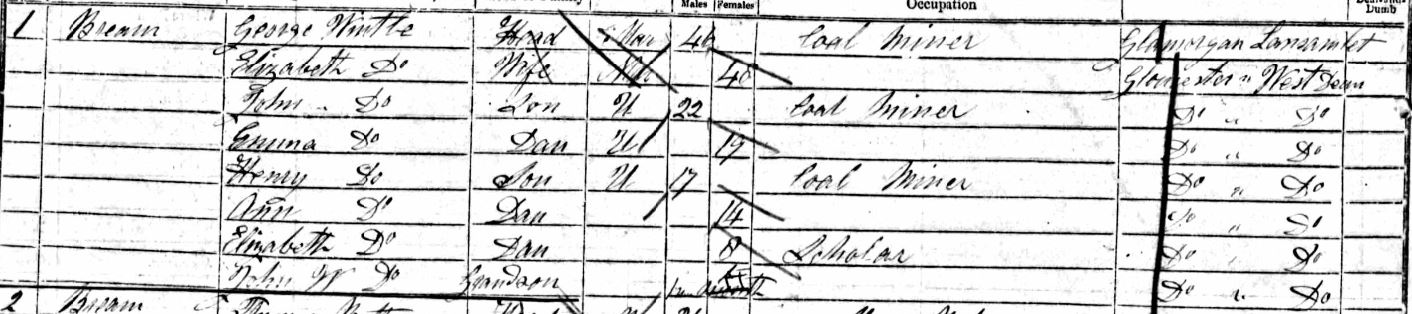 Males Females Occupation Dumb
1 Bream George Wintle Head Mar 46 Coal Miner Glamorgan Lansamlet
Elizabeth Do Wife Mar 46 Gloucester " West Dean
John " Do Son U 22 Coal Miner Do " Do
Emma Do Dau U 19 Do " Do
Henry Do Son U 17 Coal Miner Do " Do
Ann Do Dau 14 Do " Do
Elizabeth Do Dau 8 Scholar Do " Do
John W Do Grandson Do " Do
2 Bream